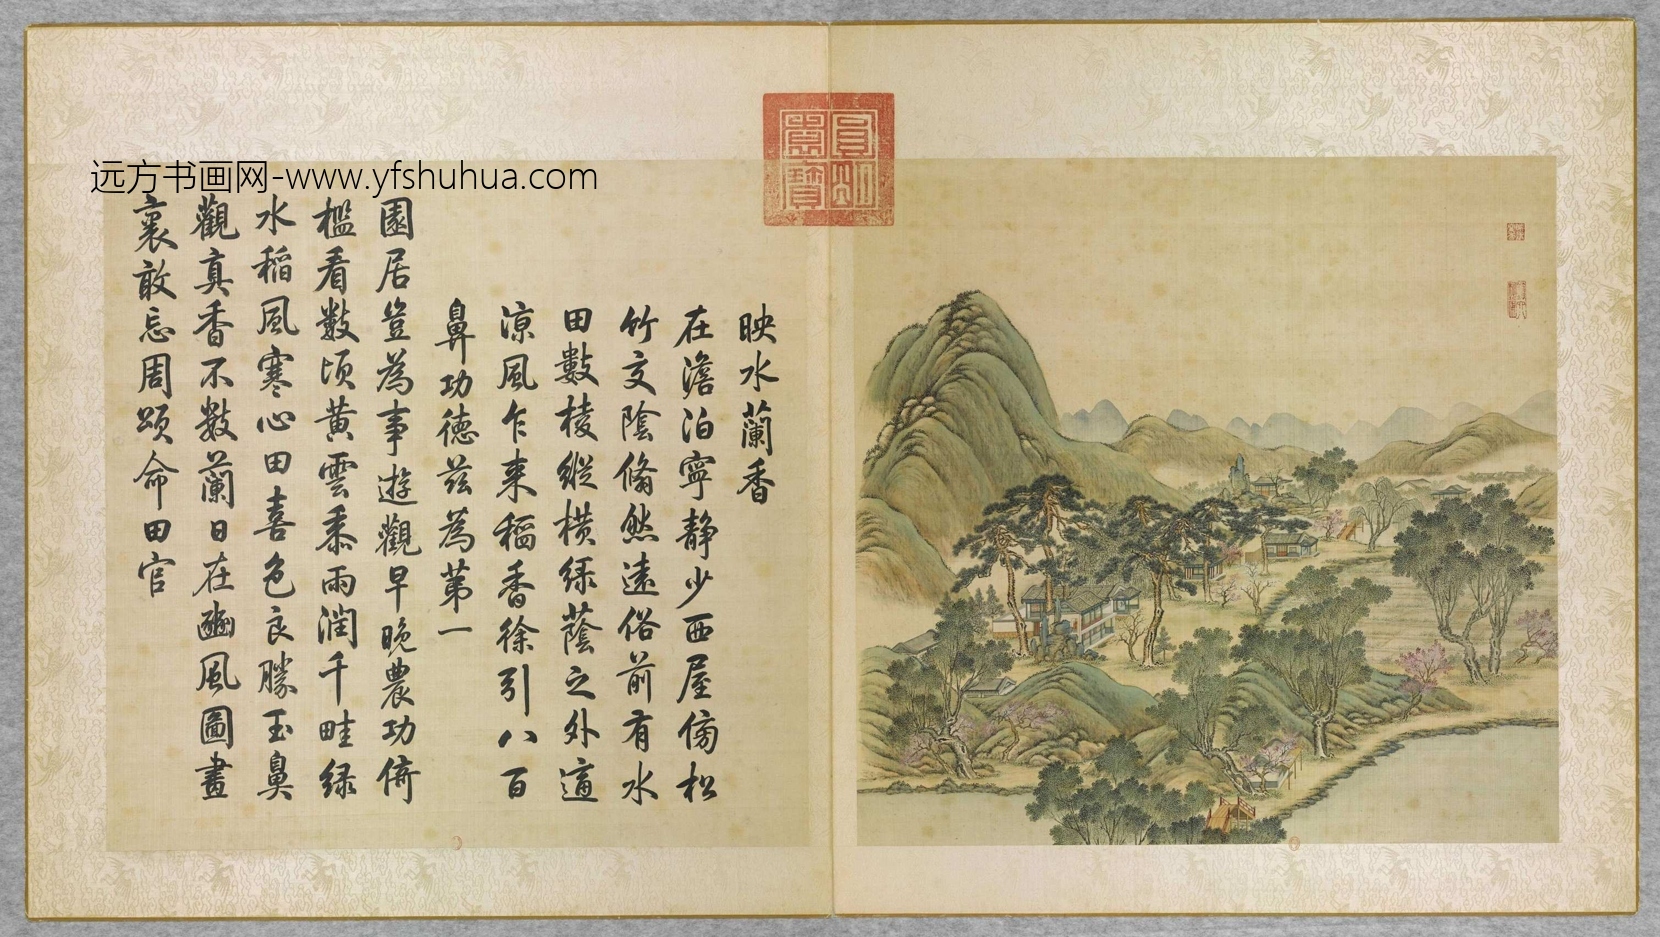 远方书画网-www.yfshuhua.com
圓明園寶
映水蘭香
在澹泊寧靜少西屋傍松
竹交陰翛然遠俗前有水
田數棱縱橫綠蔭之外適
涼風乍來稻香徐引八百
鼻功德茲為第一
園居豈為事遊觀早晚農功倚
檻看數頃黃雲黍雨潤千畦綠
水稻風寒心田喜色良勝玉鼻
觀真香不數蘭日在豳風圖畫
裏敢忘周頌命田官